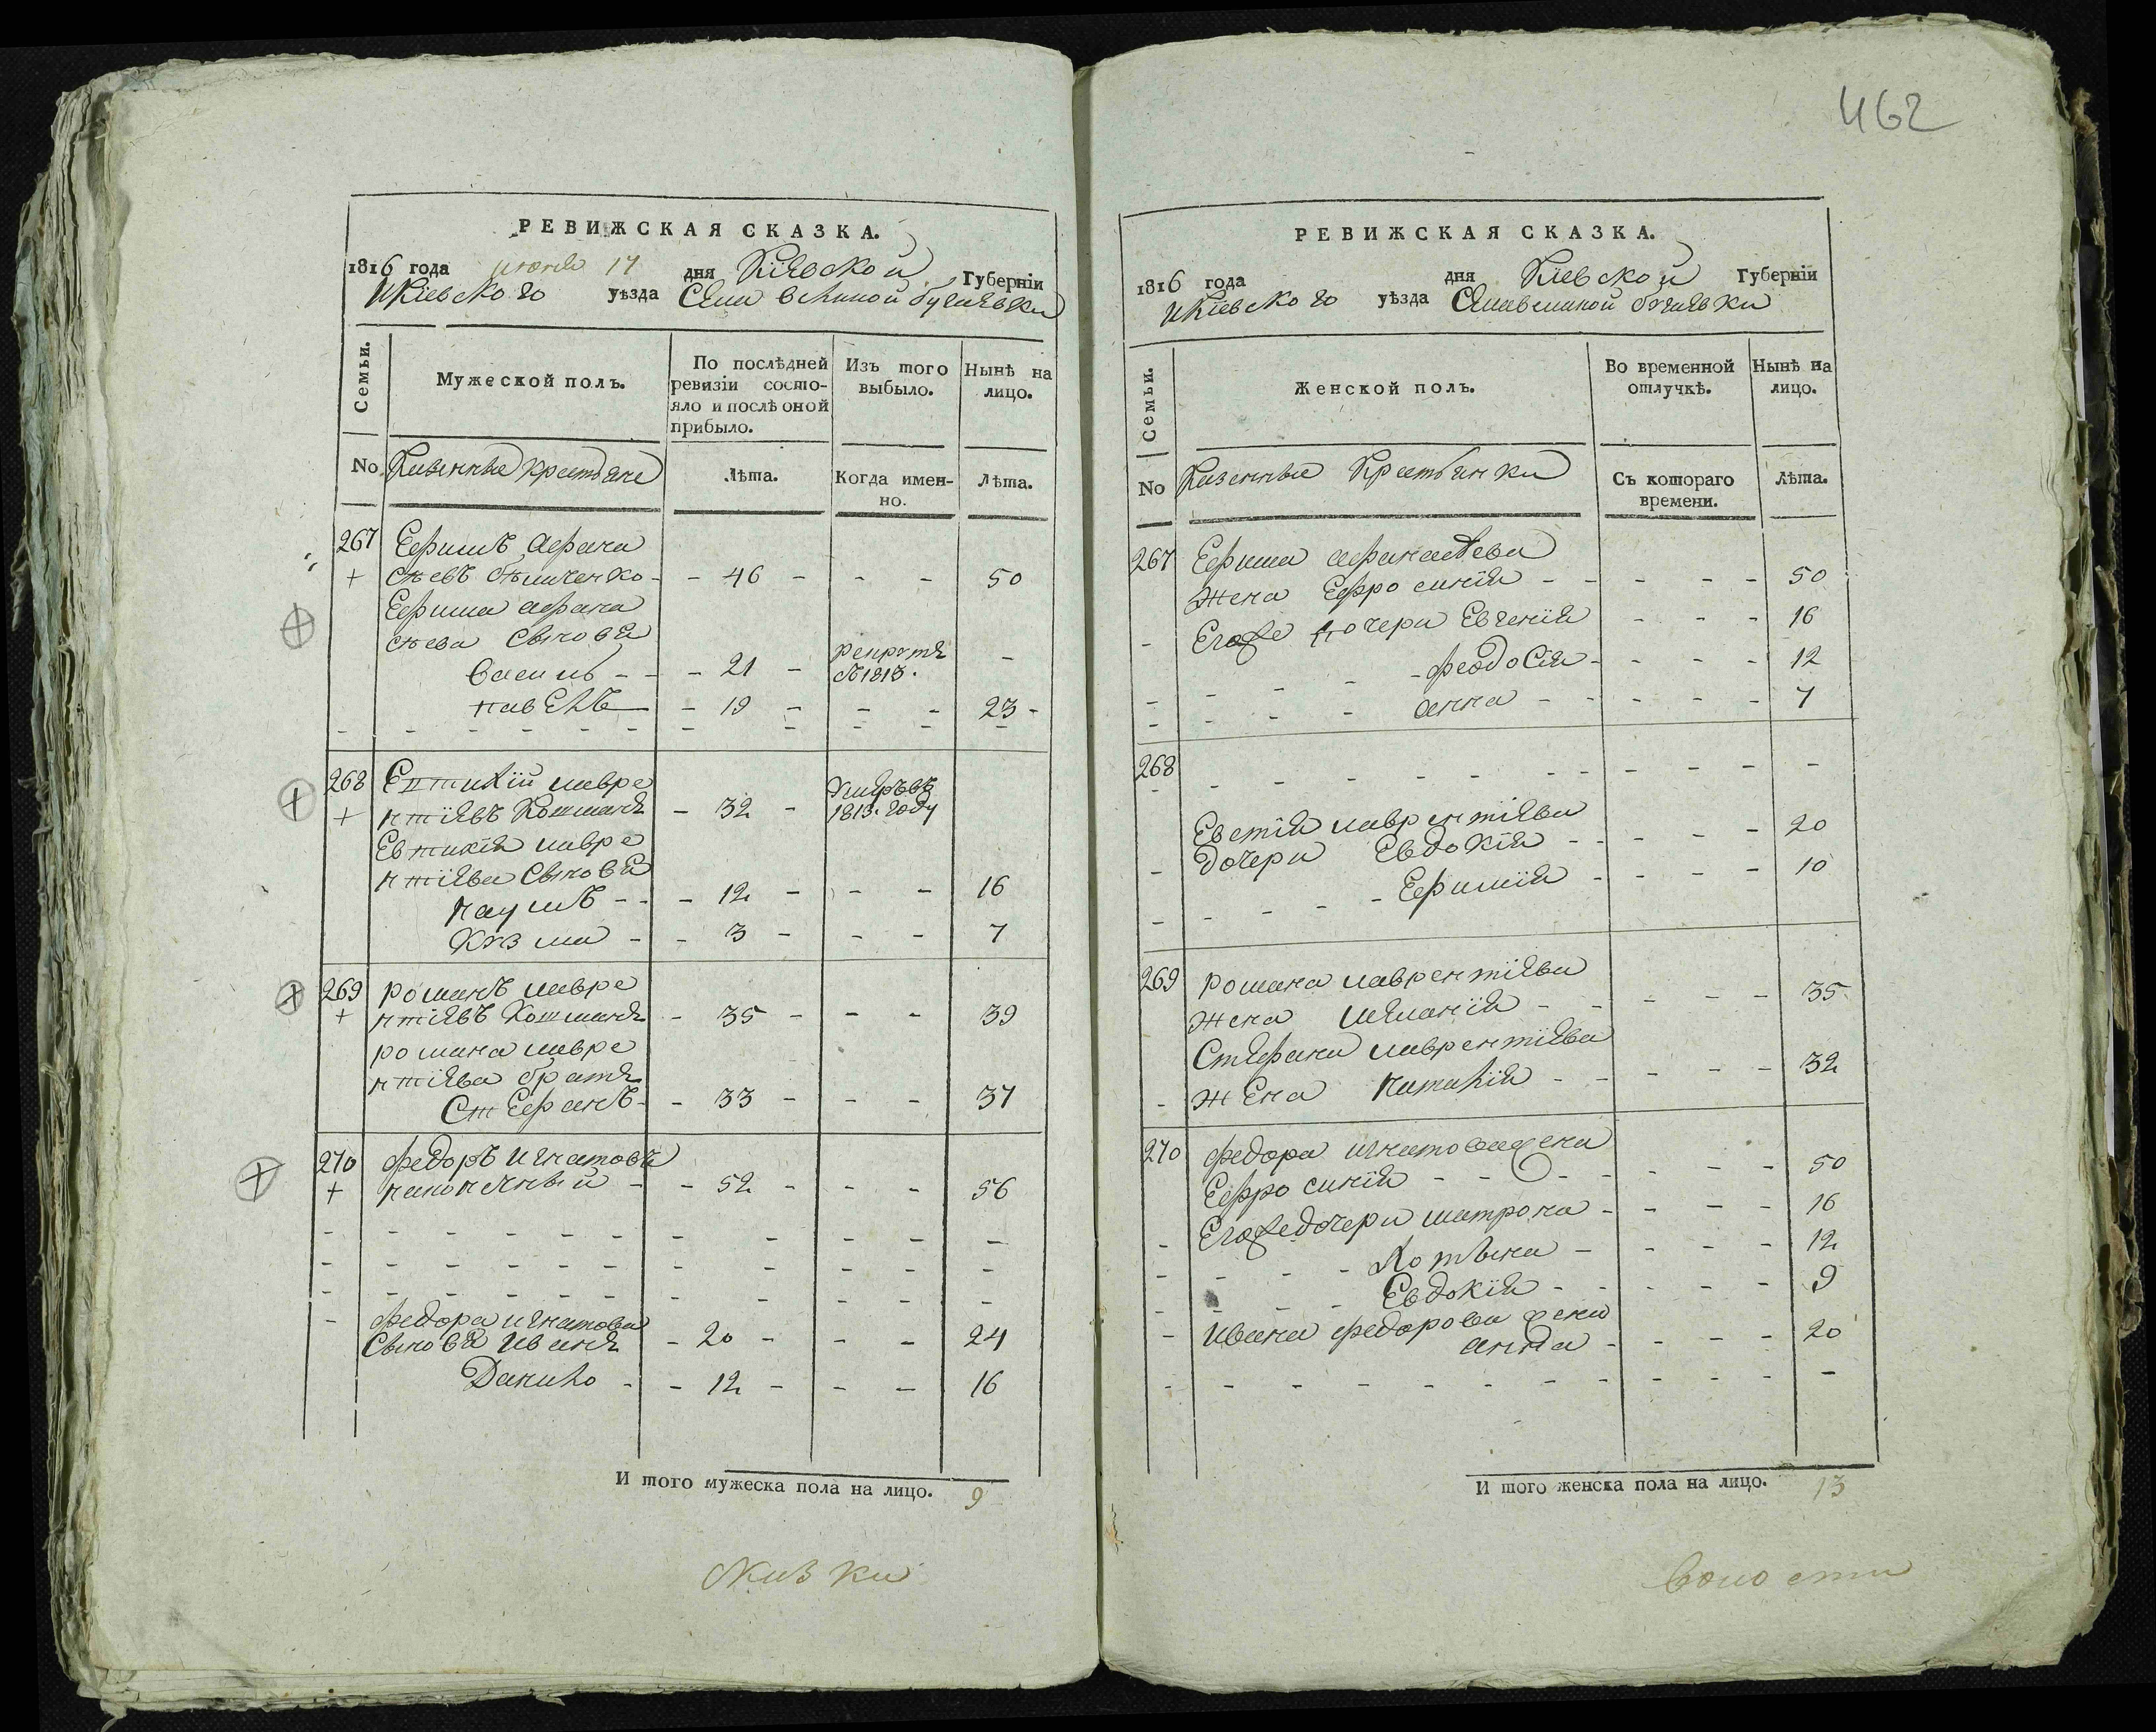 462
РЕВИЖСКАЯ СКАЗКА.
1816 года июня 17 дня Кіевской Губерніи
И Кіевского уѣзда Села великой бугаевки
Семьи.
Мужеской полъ.
По послѣдней ревизіи состо-
яло и послѣ оной
прибыло.
Изъ того
выбыло.
Нынѣ на
лицо.
No
Казенные крестьяне
Лѣта.
Когда имен-
но.
Лѣта.
267 Ефимъ Афана
+ сѣевъ - 46 - - - 50
Ефима афана
сѣева Сынове
василь - - - 21 - рекрутъ
1813. -
павелъ - 19 - - - 23 -
268 Евтихій лавре
+ нтіевъ - 32 - 1813. году
Евтихія лавре
нтіева Сынове
наумъ - - - 12 - - - 16
Кузма - - 3 - - - 7
269 романъ лавре
+ нтіевъ - 35 - - - 39
романа лавре
нтіева братъ
Стефанъ - - 33 - - - 37
270 федоръ игнатовъ
+ - - 52 - - - 56
федора игнатова
Сынове иванъ - 20 - - - 24
Данило - - 12 - - - 16
И того мужеска пола на лицо. 9
РЕВИЖСКАЯ СКАЗКА.
1816 года дня Кіевской Губерніи
И Кіевского уѣзда Села великой бугаевки
Семьи.
Женской полъ.
Во временной
отлучкѣ.
Нынѣ на
лицо.
No
Казенные Крестьянки
Съ котораго
времени.
Лѣта.
267 Ефима афанасѣева
жена Ефросинія - - - - - 50
Его же дочери Евгенія - - - 16
- феодосія - - - - 12
анна - - - - - 7
268
Евтихія лаврентіева
дочери Евдокія - - - - - 20
- Ефимія - - - - 10
269 романа лаврентіева
жена меланія - - - - - 35
Стефана лаврентіева
жена наталія - - - - - 32
270 федора игнатова жена
Ефросинія - - - - - - - 50
Его же дочери матрона - - - - 16
- - - - - 12
Евдокія - - - - - 9
ивана федорова жена
анна - - - - 20
И того женска пола на лицо. 13
волости